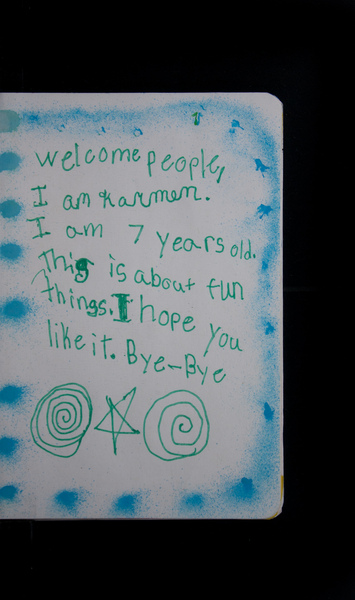 welcome people,
I am Karmen.
I am 7 years old.
This is about fun
things. I hope you
like it. Bye-Bye